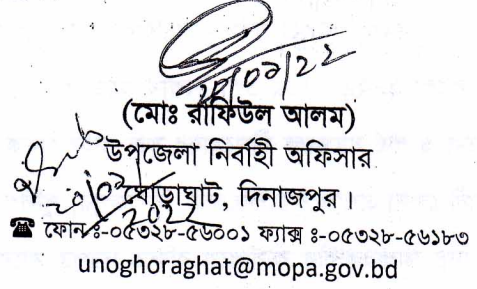 (মোঃ রাফিউল আলম)
উপজেলা নির্বাহী অফিসার
ঘোড়াঘাট, দিনাজপুর।
☎ ফোন ঃ-০৫৩২৮-৫৬০০১ ফ্যাক্স ঃ-০৫৩২৮-৫৬১৮৩
unoghoraghat@mopa.gov.bd